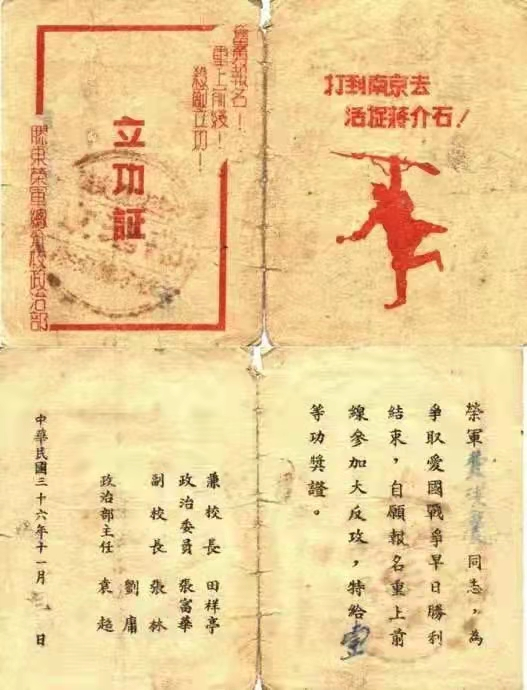 打到南京去
活捉蔣介石！
奮勇報名！
重上前綫！
殺敵立功！
立功証
膠東榮軍總分校政治部
榮軍 同志，為
爭取愛國戰爭早日勝利
結束，自願報名重上前
線參加大反攻，特給壹
等功獎證。
兼校長 田祥亭
政治委員 張富華
副校長 張林
劉庸
政治部主任 袁超
中華民國三十六年十一月 日